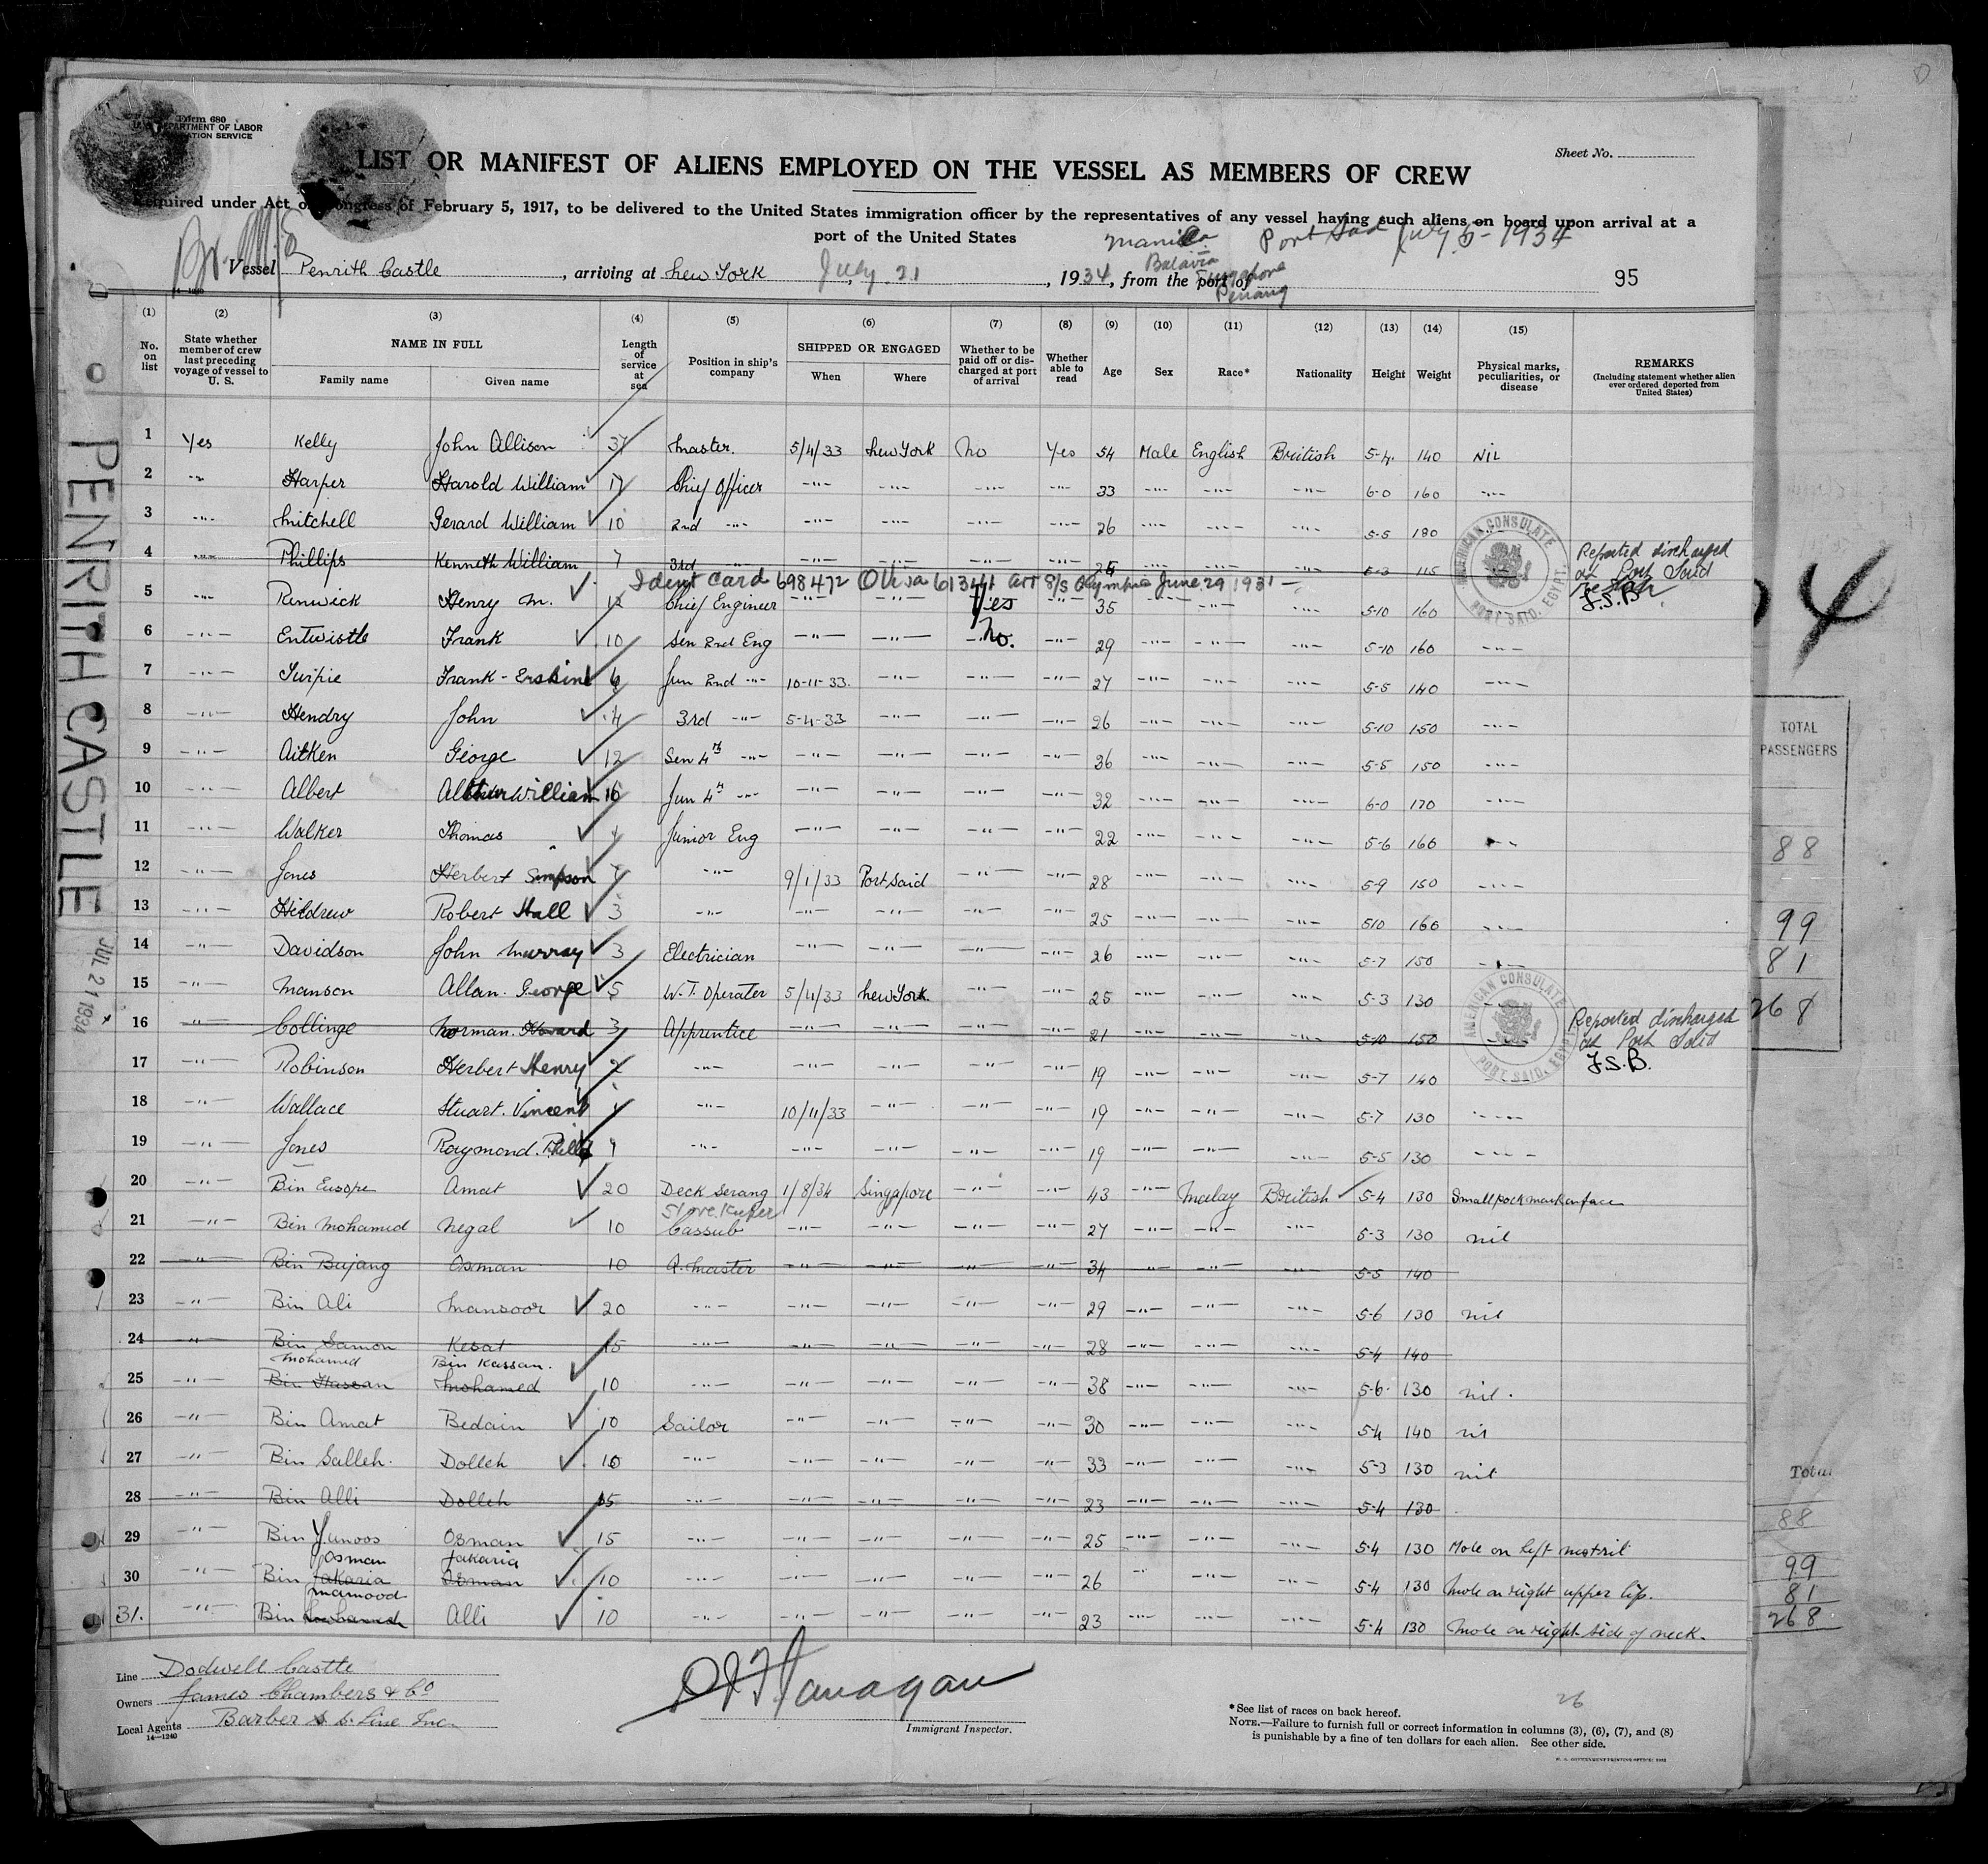 Form 680
U. S. DEPARTMENT OF LABOR
IMMIGRATION SERVICE
Sheet No.
LIST OR MANIFEST OF ALIENS EMPLOYED ON THE VESSEL AS MEMBERS OF CREW
Required under Act of Congress of February 5, 1917, to be delivered to the United States immigration officer by the representatives of any vessel having such aliens on board upon arrival at a
port of the United States
Manila Port Said July 6-1934
Batavia
Vessel Penrith Castle, arriving at New York July 21, 1934, from the port of Singapore 95
Penang
(1) (2) (3) (4) (5) (6) (7) (8) (9) (10) (11) (12) (13) (14) (15)
No. on list State whether member of crew last preceding voyage of vessel to U. S. NAME IN FULL Family name Given name Length of service at sea Position in ship's company SHIPPED OR ENGAGED When Where Whether to be paid off or discharged at port of arrival Whether able to read Age Sex Race* Nationality Height Weight Physical marks, peculiarities, or disease REMARKS (Including statement whether alien ever ordered deported from United States)
1 Yes Kelly John Allison 37 Master. 5/4/33 New York No Yes 54 Male English British 5-4. 140 NIL
2 -"- Harper Harold William 17 Chief Officer -"- -"- -"- -"- 33 -"- -"- -"- 6-0 160 -"-
3 -"- Mitchell Gerard William 10 2nd -"- -"- -"- -"- -"- 26 -"- -"- -"- 5-5 180
4 -"- Phillips Kenneth William 7 3rd -"- -"- -"- -"- -"- -"- -"- -"- 5-3 115 Reported discharged at Port Said
J.S.B.
Ident Card 698472 arr S/S Olympic June 29 1931
5 -"- Renwick Henry M. 12 Chief Engineer -"- -"- Yes -"- 35 -"- -"- -"- 5-10 160
6 -"- Entwistle Frank 10 Sen 2nd Eng -"- -"- No. -"- 29 -"- -"- -"- 5-10 160 -"-
7 -"- Turpie Frank-Erskine 6 Jun 2nd -"- 10-11-33. -"- -"- -"- 27 -"- -"- -"- 5-5 140 -"-
8 -"- Hendry John 4 3rd -"- 5-4-33 -"- -"- -"- 26 -"- -"- -"- 5-10 150 -"-
9 -"- Aitken George 12 Sen 4th -"- -"- -"- -"- -"- 36 -"- -"- -"- 5-5 150 -"-
10 -"- Albert William 16 Jun 4th -"- -"- -"- -"- -"- 32 -"- -"- -"- 6-0 170 -"-
11 -"- Walker Thomas Junior Eng -"- -"- -"- -"- 22 -"- -"- -"- 5-6 160 -"-
12 -"- Jones Herbert Simpson 7 -"- 9/1/33 Port Said -"- -"- 28 -"- -"- -"- 5-9 150 -"-
13 -"- Hildrew Robert Hall 3 -"- -"- -"- -"- -"- 25 -"- -"- -"- 510 160 -"-
14 -"- Davidson John Murray 3 Electrician -"- -"- -"- -"- 26 -"- -"- -"- 5-7 150 -"-
15 -"- Manson Allan. George 5 W.T. Operater 5/4/33 New York. -"- -"- 25 -"- -"- -"- 5-3 130
16 -"- Collinge Norman. Howard 3 Apprentice -"- -"- -"- -"- 21 -"- -"- -"- 5-10 150 -"- Reported discharged at Port Said
J.S.B.
17 -"- Robinson Herbert Henry 2 -"- -"- -"- -"- -"- 19 -"- -"- -"- 5-7 140
18 -"- Wallace Stuart. Vincent 1 -"- 10/11/33 -"- -"- -"- 19 -"- -"- -"- 5-7 130 -"-
19 -"- Jones Raymond. 1 -"- -"- -"- -"- -"- 19 -"- -"- -"- 5-5 130 -"-
20 -"- Bin Eusope Amat 20 Deck Serang 1/8/34 Singapore -"- -"- 43 -"- Malay British 5-4 130 Small pock mark on face
Store Keeper
21 -"- Bin Mohamed Negal 10 Cassub -"- -"- -"- -"- 27 -"- -"- -"- 5-3 130 nil
22 -"- Bin Bujang Osman 10 Q. Master -"- -"- -"- -"- 34 -"- -"- -"- 5-5 140
23 -"- Bin Ali Mansoor 20 -"- -"- -"- -"- -"- 29 -"- -"- -"- 5-6 130 nil
24 -"- Bin Samon Kesat 15 -"- -"- -"- -"- -"- 28 -"- -"- -"- 5-4 140
Mohamed Bin Kassan.
25 -"- Bin Hassan Mohamed 10 -"- -"- -"- -"- -"- 38 -"- -"- -"- 5-6. 130 nil.
26 -"- Bin Amat Bedain 10 Sailor -"- -"- -"- -"- 30 -"- -"- -"- 5-4 140 nil
27 -"- Bin Salleh. Dolleh 10 -"- -"- -"- -"- -"- 33 -"- -"- -"- 5-3 130 nil
28 -"- Bin Alli Dolleh 15 -"- -"- -"- -"- -"- 23 -"- -"- -"- 5-4 130
29 -"- Bin Yunoos Osman 15 -"- -"- -"- -"- -"- 25 -"- -"- -"- 5-4 130 Mole on left nostril
Osman Jakaria
30 -"- Bin Jakaria Osman 10 -"- -"- -"- -"- -"- 26 -"- -"- -"- 5-4 130 Mole on right upper lip.
Mamood
31. -"- Bin Mohamed Alli 10 -"- -"- -"- -"- -"- 23 -"- -"- -"- 5-4 130 Mole on right side of neck.
Line Dodwell Castle
Owners James Chambers & Co
Local Agents Barber S. S. Line Inc.
14—1240
Flanagan
Immigrant Inspector.
26
*See list of races on back hereof.
NOTE.—Failure to furnish full or correct information in columns (3), (6), (7), and (8)
is punishable by a fine of ten dollars for each alien. See other side.
PENRITH CASTLE
JUL 21 1934
AMERICAN CONSULATE
PORT SAID, EGYPT.
AMERICAN CONSULATE
PORT SAID, EGYPT.
4
TOTAL
PASSENGERS
88
99
81
268
Total
88
99
81
268